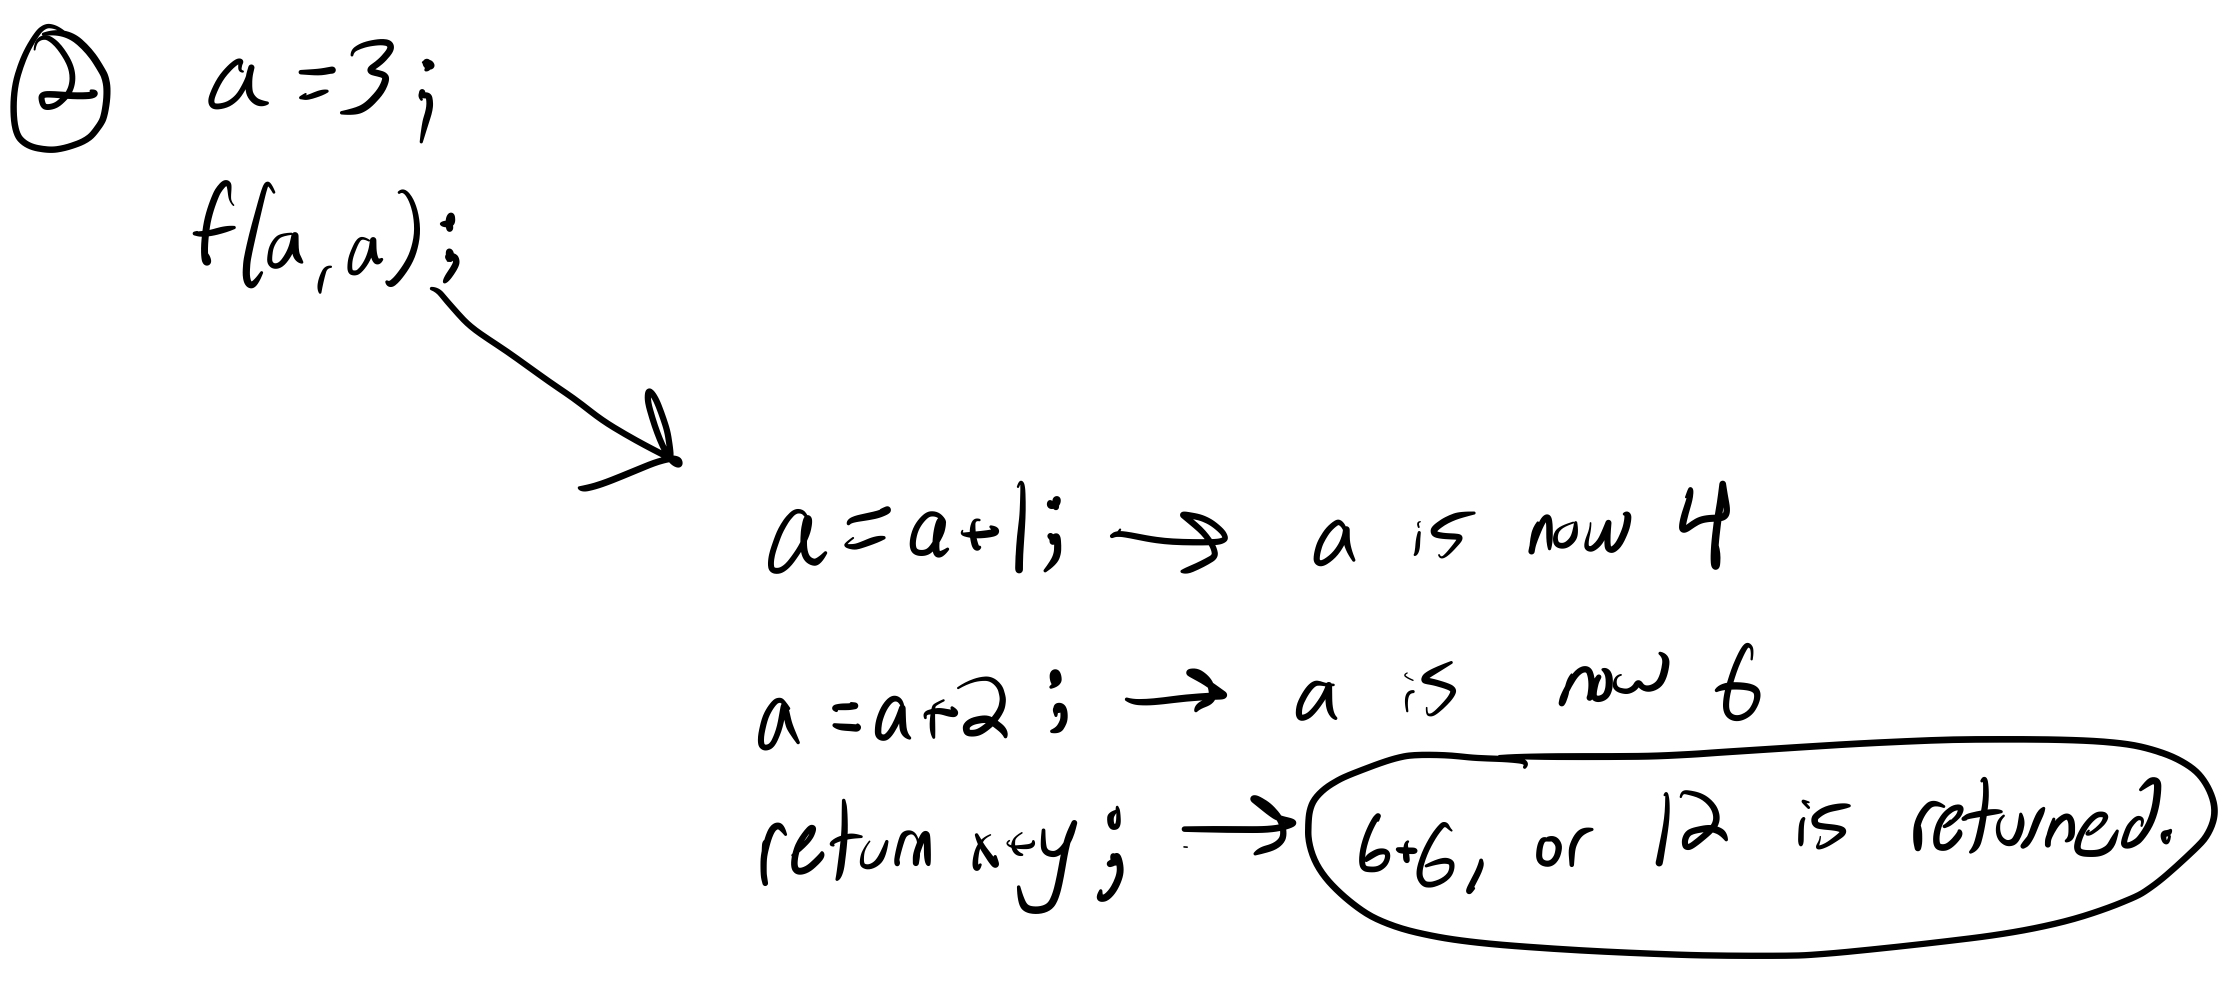 2 a = 3;
f(a, a);
a = a+1; → a is now 4
a = a+2; → a is now 6
return x+y; → 6+6, or 12 is returned.